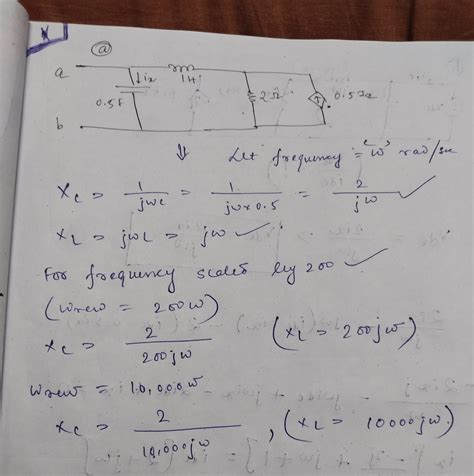 X
(a)
a ↓ix 1H
0.5F 2Ω 0.5ix
b
⇓ Let frequency = "w" rad/sec
Xc = 1/jwc = 1/(jw×0.5) = 2/jw ✓
XL = jwL = jw ✓
For frequency scaled by 200 ✓
(wnew = 200w)
Xc = 2/200jw (XL = 200jw)
wnew = 10,000w
Xc = 2/10,000jw , (XL = 10000jw)